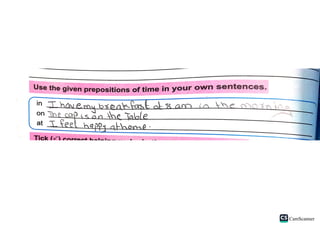 Use the given prepositions of time in your own sentences.
in I have my breakfast at 8 am in the morning
on The cap is on the Table
at I feel happy at home.
Tick (✓) correct
CS CamScanner